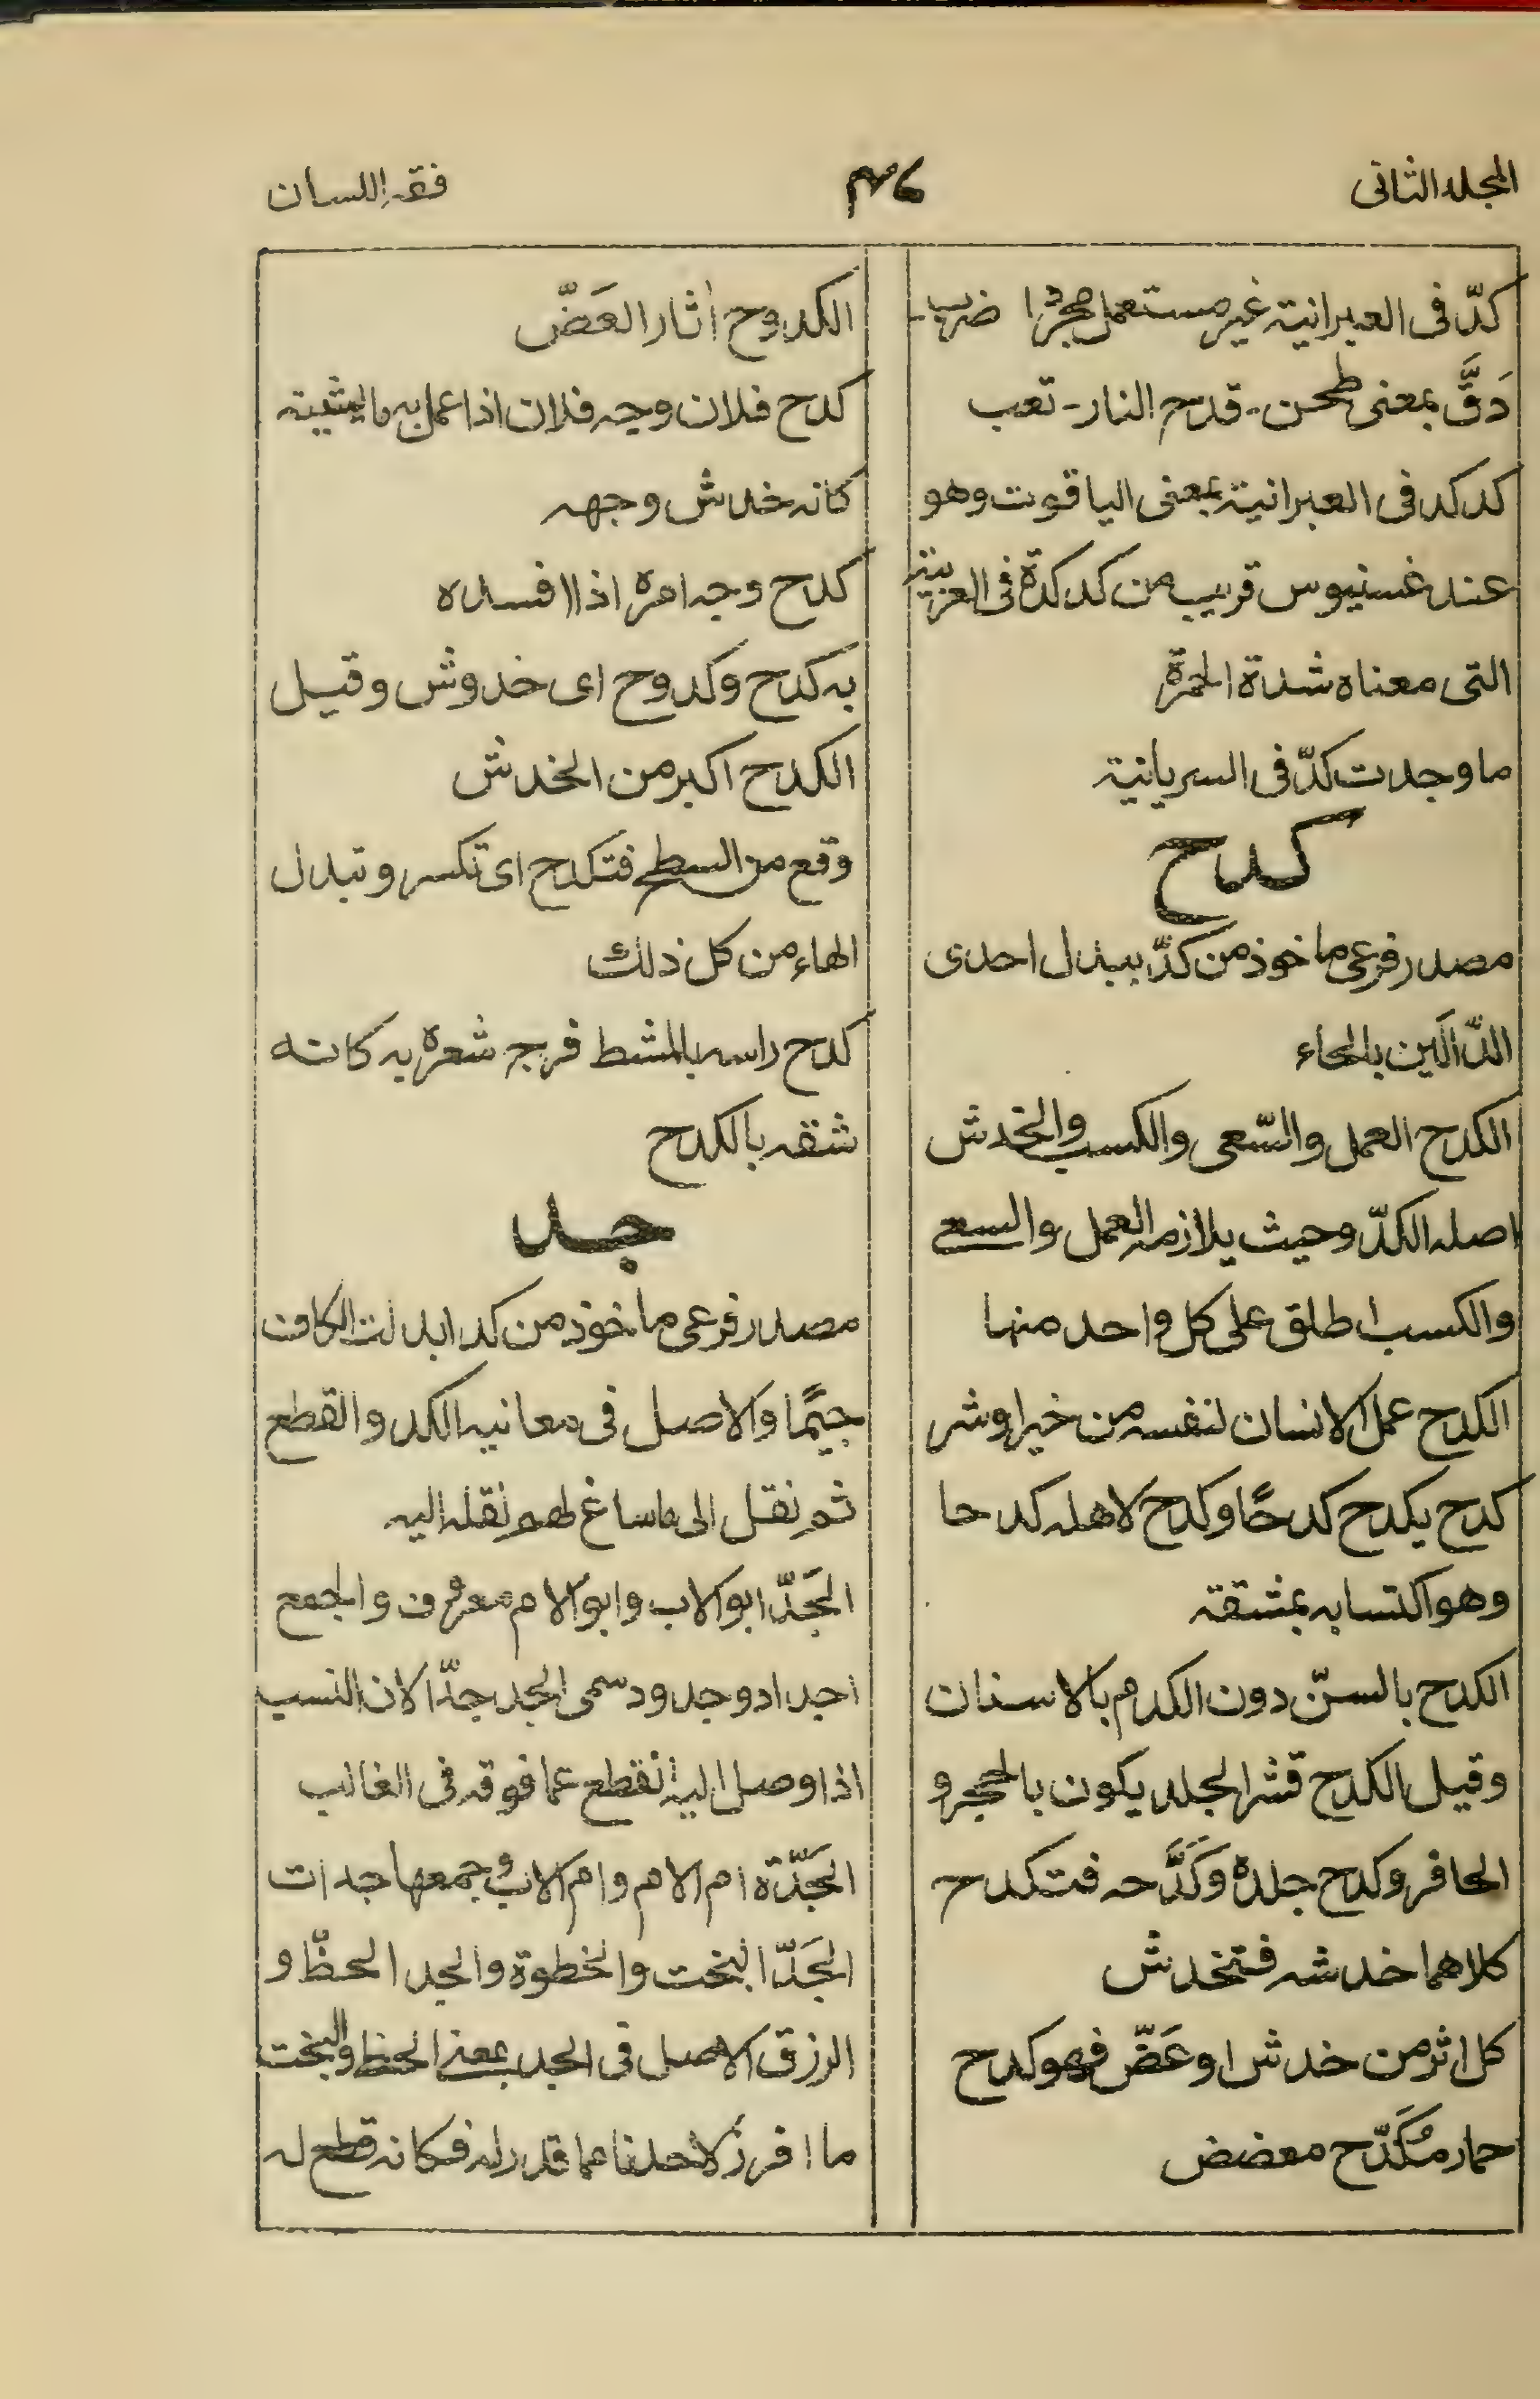 المجلد الثانى
فقه اللسان
كدّ فى العبرانية غير مستعمل مجردا ضرب -
دَقَّ بمعنى طحن - قدح النار - تعب
كدكد فى العبرانية بمعنى الياقوت وهو
عند غسنيوس قريب من كدكدة فى العربية
التى معناه شدة الحمرة
ما وجدت كدّ فى السريانية
كدح
مصدر فرعى ماخوذ من كدّ ببدل احدى
الدّالَين بالحاء
الكدح العمل والسّعى والكسب والخدش
اصله الكدّ وحيث يلازمه العمل والسعى
والكسب اطلق على كل واحد منها
الكدح عمل الانسان لنفسه من خير او شر
كدح يكدح كدحًا وكدح لاهله كدحا
وهو اكتسابه بمشقة
الكدح بالسنّ دون الكدم بالاسنان
وقيل الكدح قشر الجلد يكون بالحجر و
الحافر وكدح جلدة وَكَدَّحه فتكدح
كلاهما خدشه فتخدش
كل اثر من خدش او عَضّ فهو كدح
حمار مُكَدّح معضض
الكدوح اثار العَضّ
كدح فلان وجه فلان اذا عمل به ما يشينه
كانه خدش وجهه
كدح وجه امره اذا افسده
به كدح وكدوح اى خدوش وقيل
الكدح اكبر من الخدش
وقع من السطح فتكدح اى تكسر وتبدل
الهاء من كل ذلك
كدح راسه بالمشط فرج شعره به كانه
شقه بالكدح
جد
مصدر فرعى ماخوذ من كد ابدلت الكاف
جيمًا والاصل فى معانيه الكد والقطع
ثم نقل الى ما ساغ لهم نقله اليه
الجَدّ ابو الاب وابو الام معروف والجمع
اجداد وجدود سمى الجد جدّا لان النسب
اذا وصل اليه انقطع عما فوقه فى الغالب
الجَدّة ام الام وام الاب وجمعها جدات
الجَدّ البخت والحظوة والجد الحظّ و
الرزق الاصل فى الجد بمعنى الحظ والبخت
ما افرز لاحدنا عما قدر له فكانه قطع له